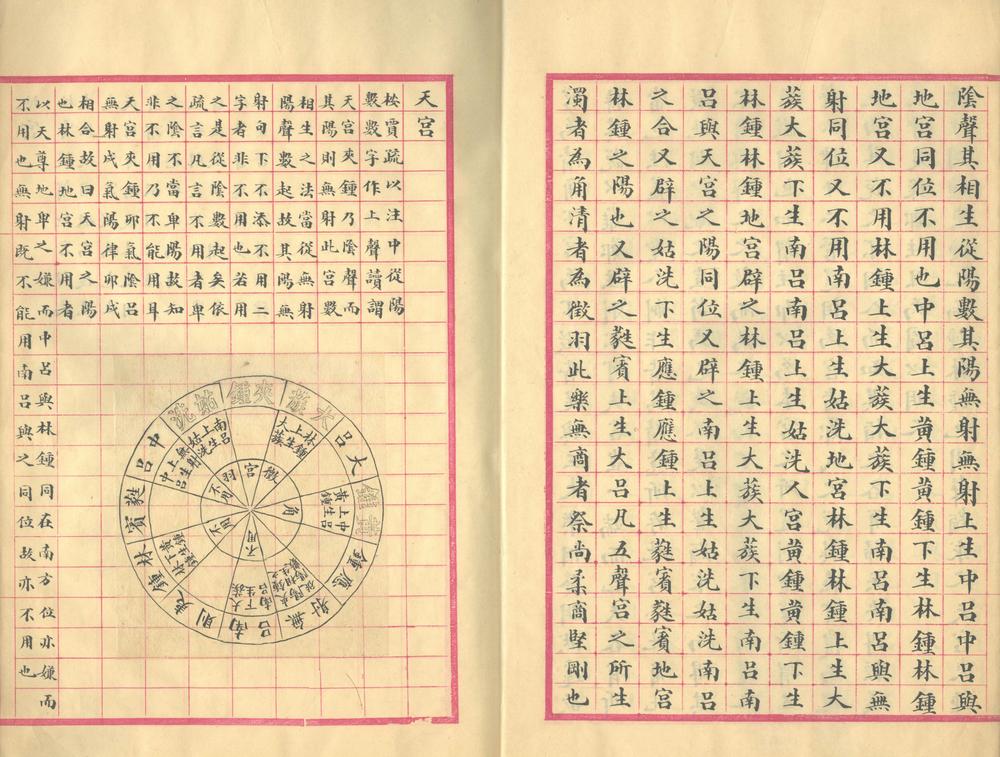 陰聲其相生從陽數其陽無射無射上生中呂中呂與
地宮同位不用也中呂上生黃鍾黃鍾下生林鍾林鍾
地宮又不用林鍾上生大蔟大蔟下生南呂南呂與無
射同位又不用南呂上生姑洗地宮林鍾林鍾上生大
蔟大蔟下生南呂南呂上生姑洗人宮黃鍾黃鍾下生
林鍾林鍾地宮辟之林鍾上生大蔟大蔟下生南呂南
呂與天宮之陽同位又辟之南呂上生姑洗姑洗南呂
之合又辟之姑洗下生應鍾應鍾上生蕤賓蕤賓地宮
林鍾之陽也又辟之蕤賓上生大呂凡五聲宮之所生
濁者為角清者為徵羽此樂無商者祭尚柔商堅剛也
天宮
桉賈疏以注中從陽
數數字作上聲讀謂
天宮夾鍾乃陰聲而
其陽則無射此宮數
相生之法當從無射
陽聲數起故其陽無
射句下不添不用二
字者非不用也若用
之是從陰數起矣依
疏言凡言不用者卑
之陰不當卑陽故知
非不用乃不能用耳
天宮夾鍾卯氣陰呂
無射戌氣陽律卯戌
相合故曰天宮之陽
也林鍾地宮不用者
以天尊地卑之嫌而中呂與林鍾同在南方位亦嫌而
不用也無射既不能用南呂與之同位故亦不用也
夾鍾
大蔟
大呂
黃鍾
應鍾
無射
南呂
夷則
林鍾
蕤賓
中呂
姑洗
林鍾上生大蔟
中呂上生黃鍾
大蔟下生南呂
黃鍾下生林鍾
無射上生中呂
南呂上生姑洗
宮
徵
角
不用
不用
不用
羽